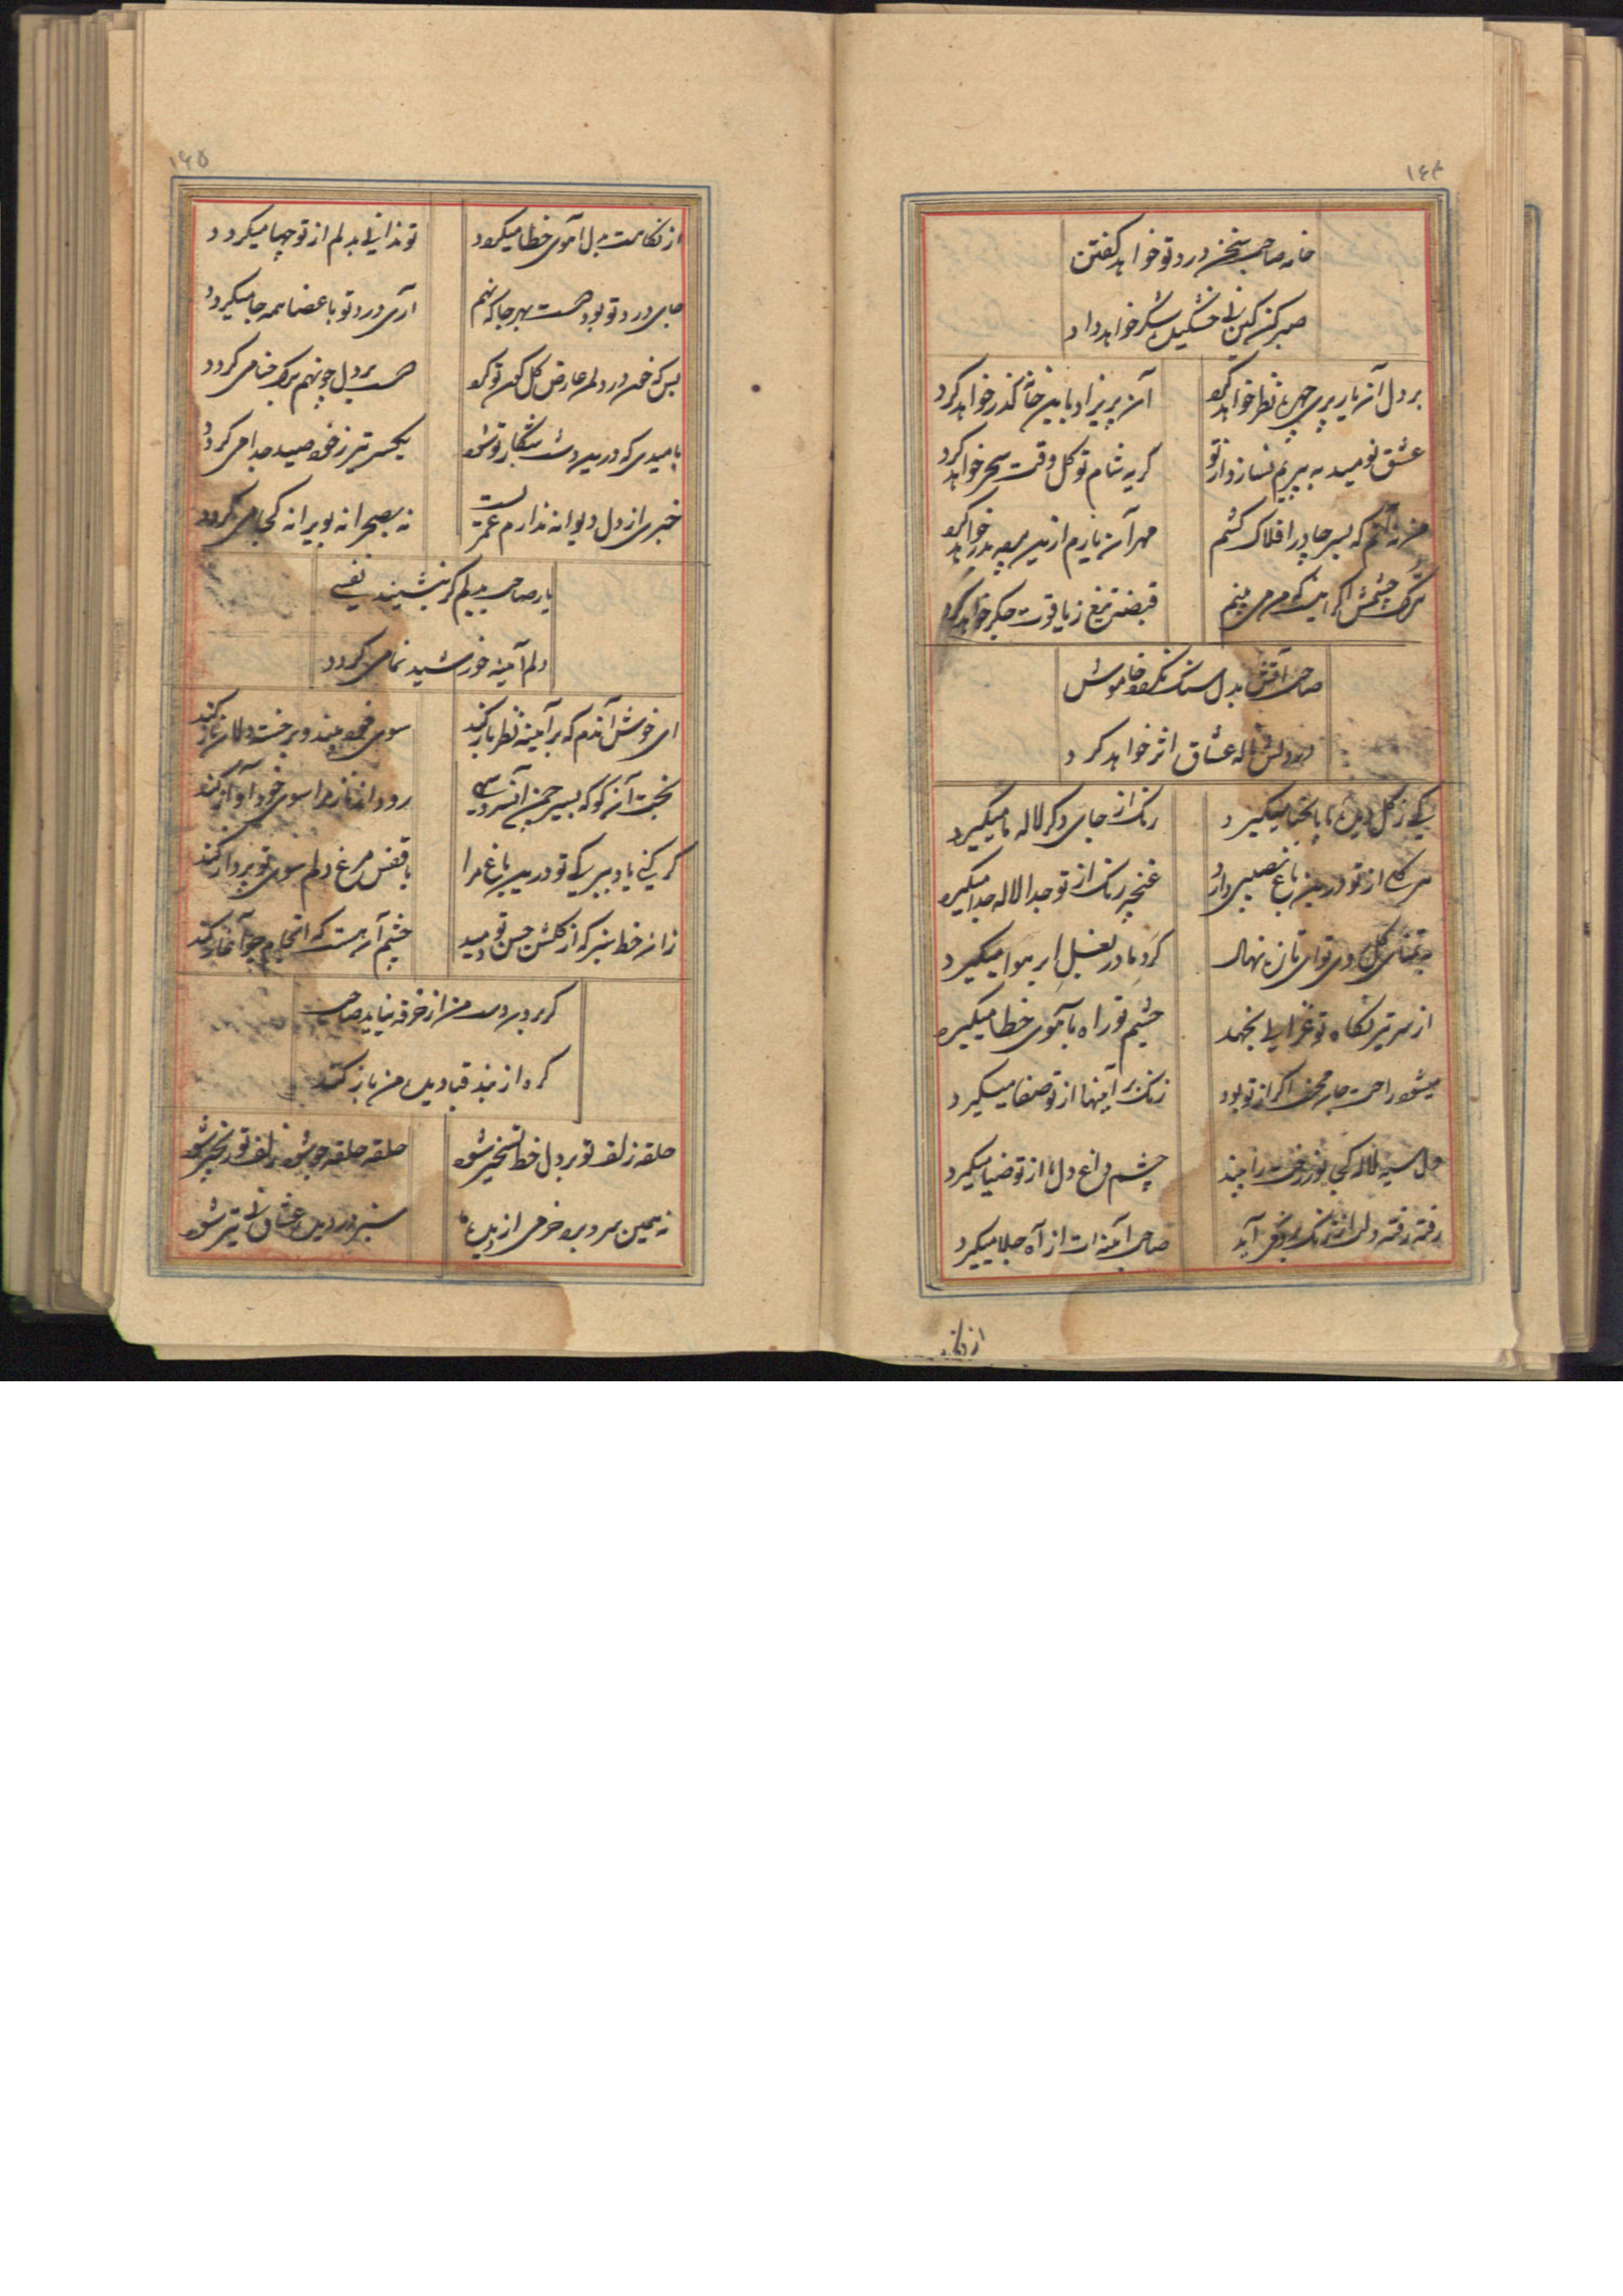 ۱۶۴
خامه صاحب سخن درد تو خواهد گفتن
صبر کن کین نی خشکیده شکر خواهد داد
بر دل آن یار پری چهره نظر خواهد کرد
آن پریزاد باین خانه گذر خواهد کرد
عشق نومید به پیریم نسازد از تو
گریه شام تو گل وقت سحر خواهد کرد
که بسر چادر افلاک کشم
مهر آن یارم ازین پرده بدر خواهد کرد
ترک چشمش اگر اینست که من می بینم
قبضه تیغ ز یاقوت جگر خواهد کرد
صاحب آتش بدل سنگ نگردد خاموش
در دلش ناله عشاق اثر خواهد کرد
کی ز گل دیده ما پا بحنا میگیرد
رنگ از جای دگر لاله ما میگیرد
هر کس از تو درین باغ نصیبی دارد
غنچه رنگ از تو جدا لاله جدا میگیرد
بتمنای گل روی تو ای تازه نهال
گرد ما در بغل ابر هوا میگیرد
از سر تیر نگاه تو غزالی نجهد
چشم تو راه بآهوی خطا میگیرد
میشود راحت جان محنت اگر از تو بود
زنگ بر آینها از تو صفا میگیرد
دل سیه لاله کی نور رخت را بیند
چشم داغ دل ما از تو ضیا میگیرد
رفته رفته دلت از زنگ برون می آید
صاحب آینه ات از آه جلا میگیرد
از نگاه
۱۶۵
از نگاهت بدل آهوی خطا میگردد
تو ندانی بدلم از تو چها میگردد
جای درد تو بود دست بهر جا که نهم
آری درد تو باعضا همه جا میگردد
بس که خون در دلم عارض گلگون تو کرد
دست بر دل چو نهم برگ حنا می گردد
بامیدی که درین دشت شکار تو شود
یکسر تیر ز خود صید جدا می گردد
خبری از دل دیوانه ندارم عمریست
نه بصحرا نه بویرانه کجا می گردد
یار صاحب بدلم گر بنشیند نفسی
دلم آینه خورشید نما می گردد
ای خوش آندم که بر آیینه نظر باز کند
سوی خود بیند و بر خسته دلان ناز کند
بخت آن کو که بسیر چمن آن سرو سهی
رود از ناز و مرا سوی خود آواز کند
گر کنی یاد بسیر گل تو درین باغ مرا
با قفس مرغ دلم سوی تو پرواز کند
زان خط سبز که از گلشن حسن تو دمید
چشم آن هست که انجام چو آغاز کند
گر برد دست من از خرقه نیاید صاحب
گره از بند قبا دیده من باز کند
حلقه زلف تو بر دل خط تسخیر شود
حلقه حلقه چو شود زلف تو زنجیر شود
نه همین سرو برد خرمی از دیده ما
سبزه در دیده عشاق نی تیر شود